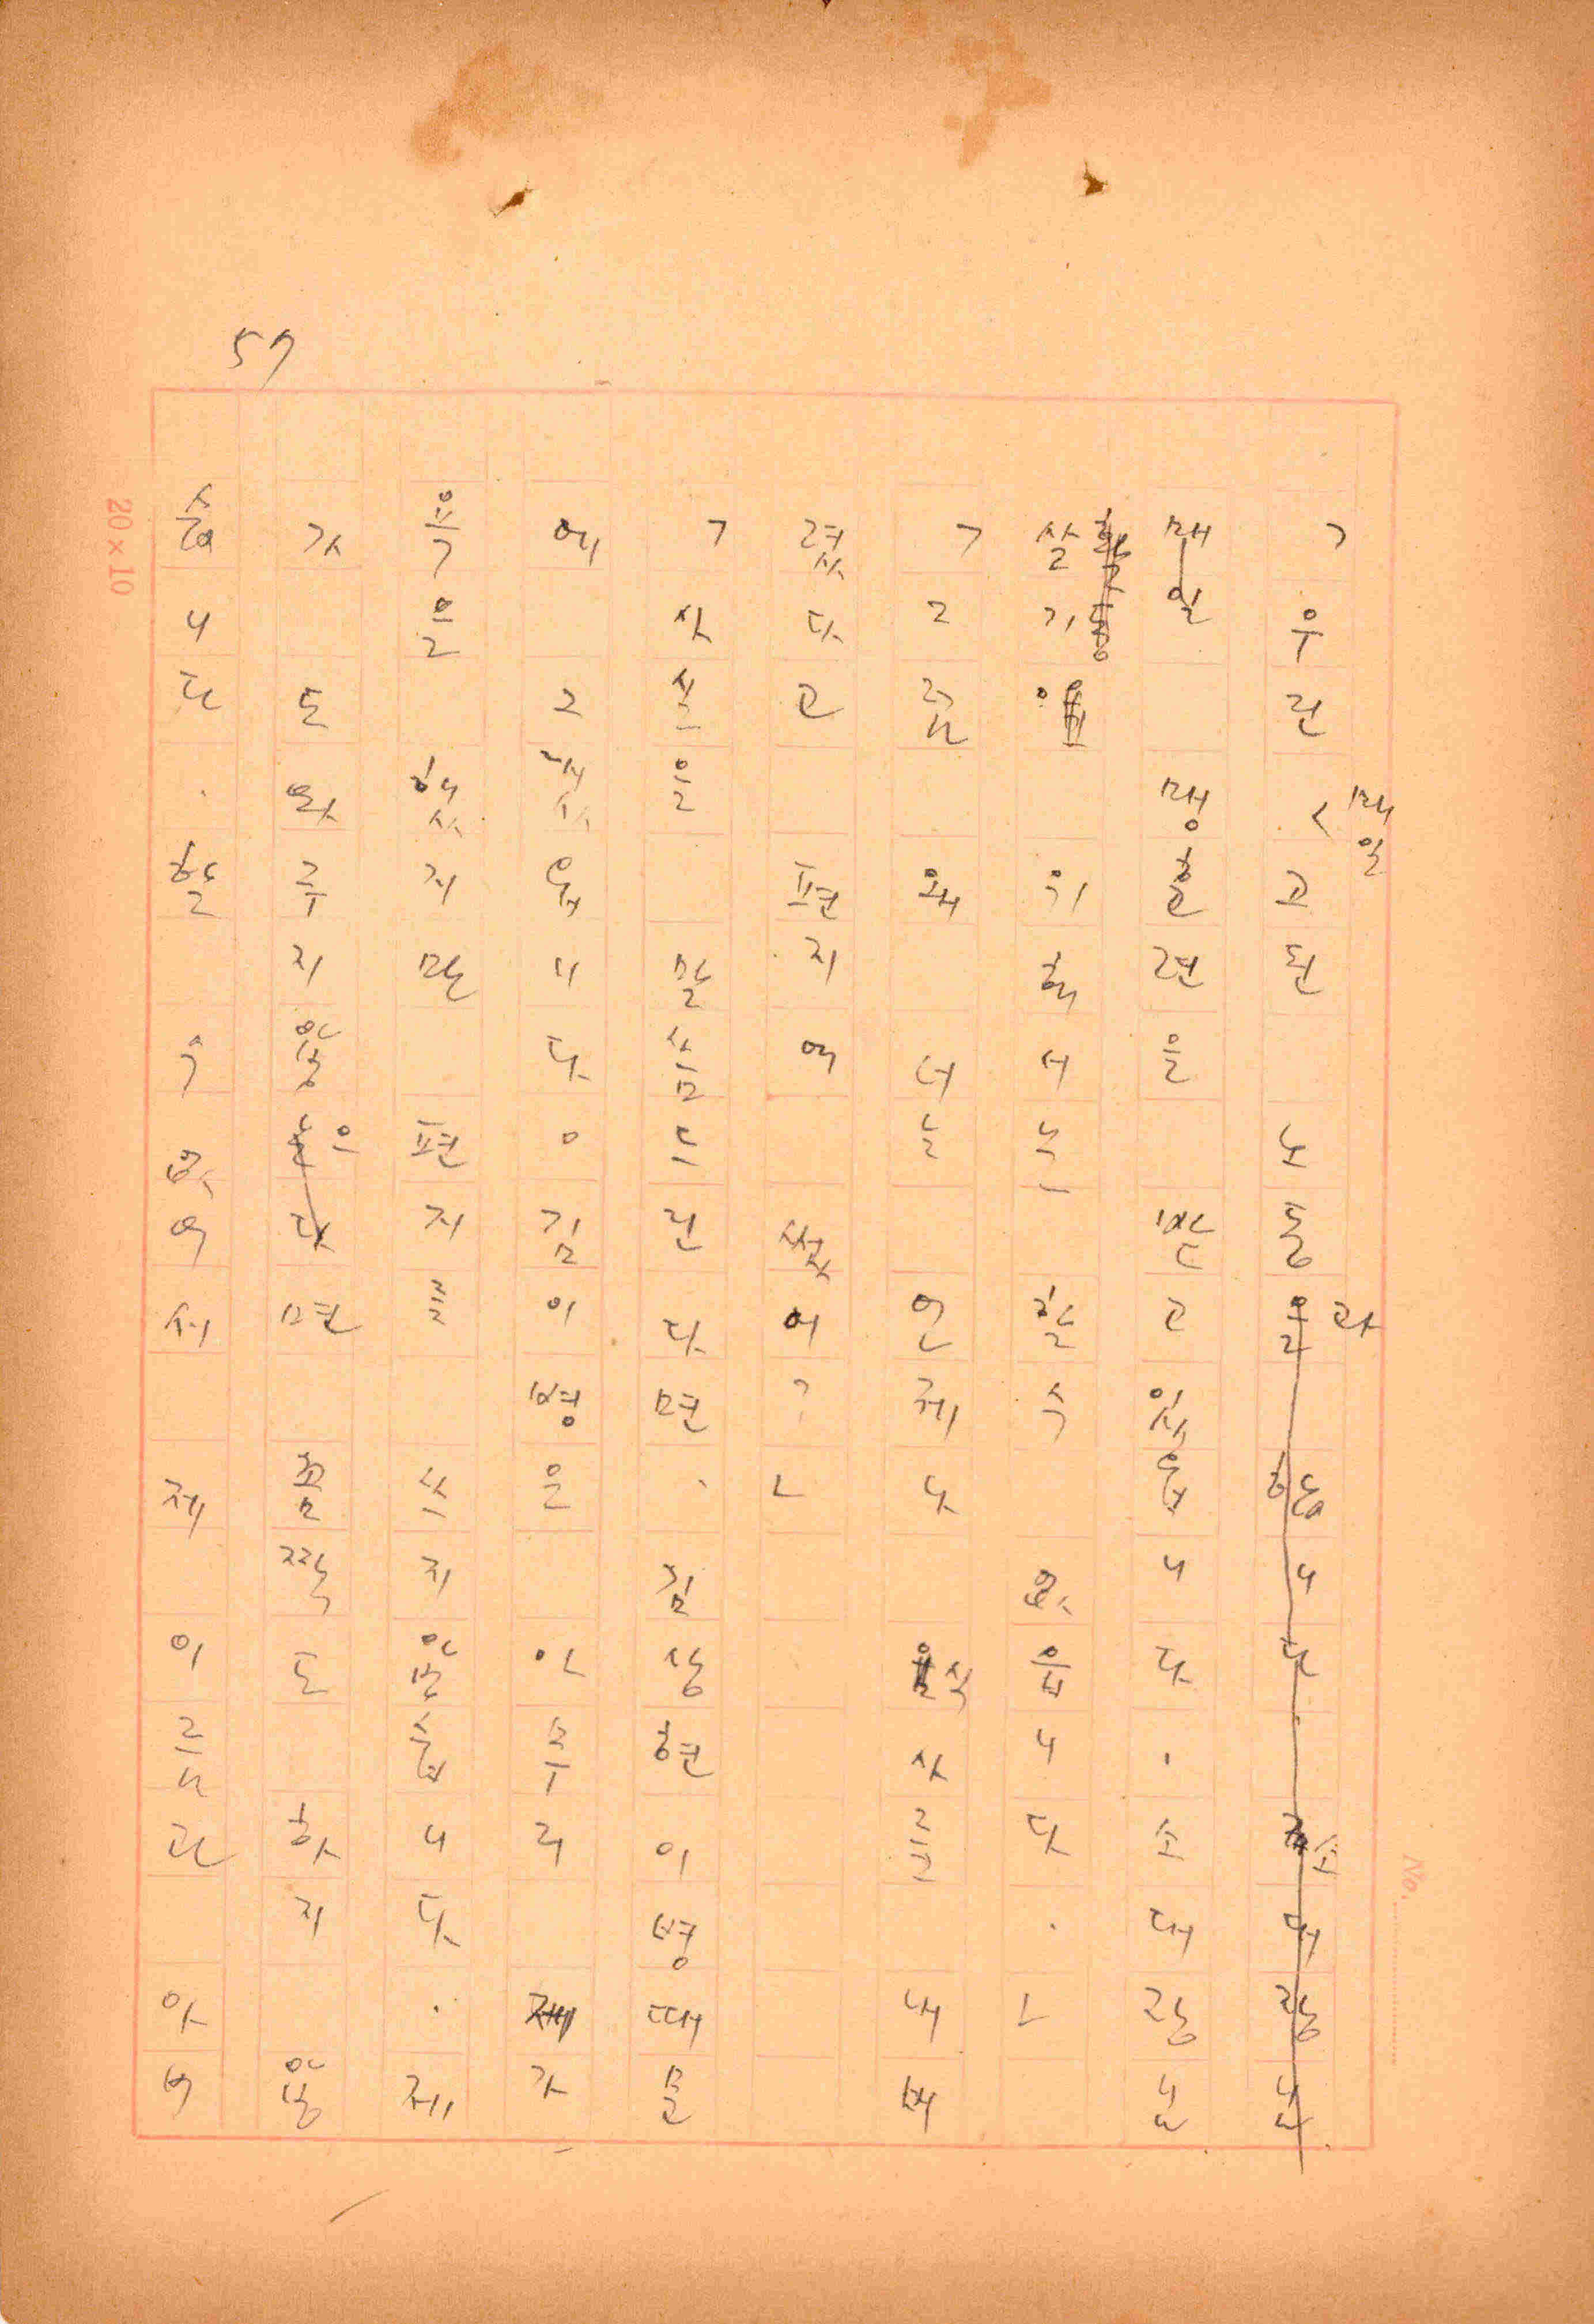 57
「우린 매일 고된 노동과 을 합니다. 소대장님
매일 맹훈련을 받고 있읍니다. 소대장님
살기 위해서는 할 수 없읍니다.」
「그럼 왜 너는 언제나 식사를 내버
렸다고 편지에 썼어?」
「사실을 말씀드린다면. 김상현이병 때문
에 그랬읍니다. 김이병은 아무리 제가
육을 했지만 편지를 쓰지 않습니다. 제
가 도와주지 않으면 꼼짝도 하지 않
습니다. 할 수 없어서 제 이름로 아버
20×10
No.